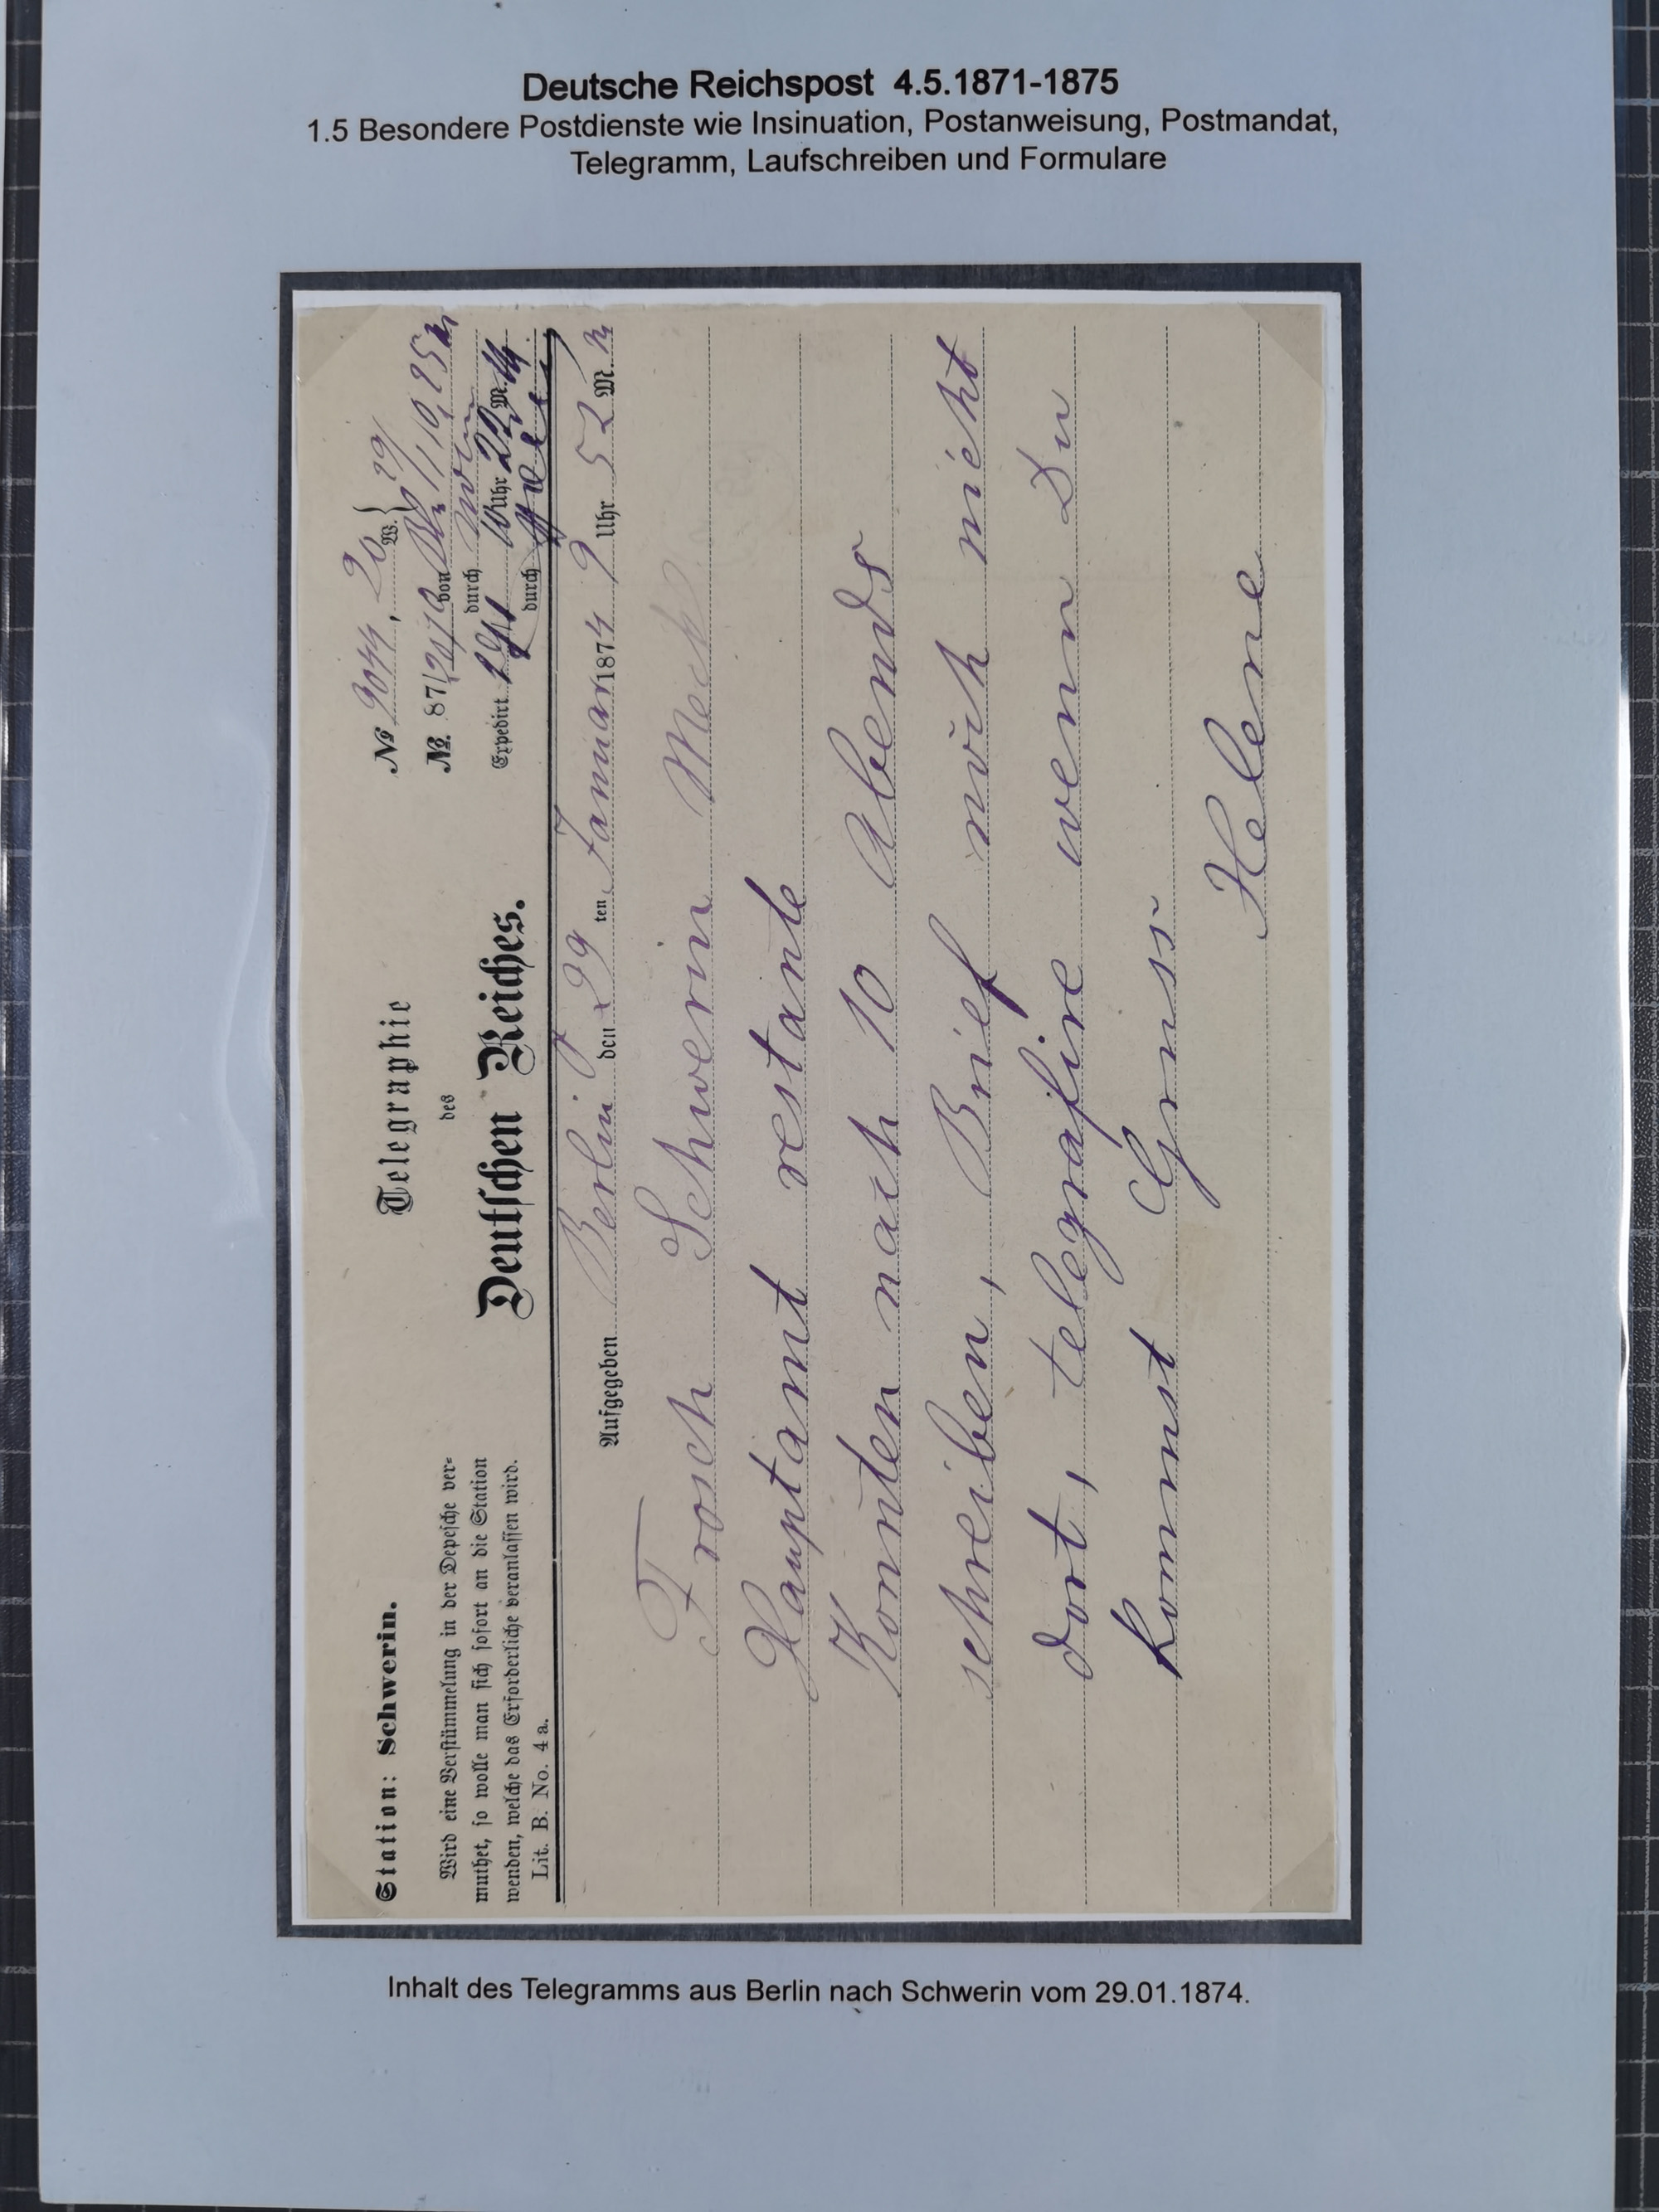 Deutsche Reichspost 4.5.1871-1875
1.5 Besondere Postdienste wie Insinuation, Postanweisung, Postmandat,
Telegramm, Laufschreiben und Formulare
Station: Schwerin.
Wird eine Verstümmelung in der Depesche ver-
muthet, so wolle man sich sofort an die Station
wenden, welche das Erforderliche veranlassen wird.
Lit. B. No. 4 a.
Telegraphie
des
Deutschen Reiches.
No 9044, 20 W. } 29/
No. 87/ von 10,25
durch
Expedirt 29/1 10 Uhr 22 M.
durch
Aufgegeben Berlin den 29 ten Januar 1874 9 Uhr 52 M.
Frosch Schwerin Meckl
Hauptamt restante
Konten nach 10 Abends
schreiben, Brief noch nicht
dort, telegrafire wenn Du
kommst Gruss
Helene
Inhalt des Telegramms aus Berlin nach Schwerin vom 29.01.1874.